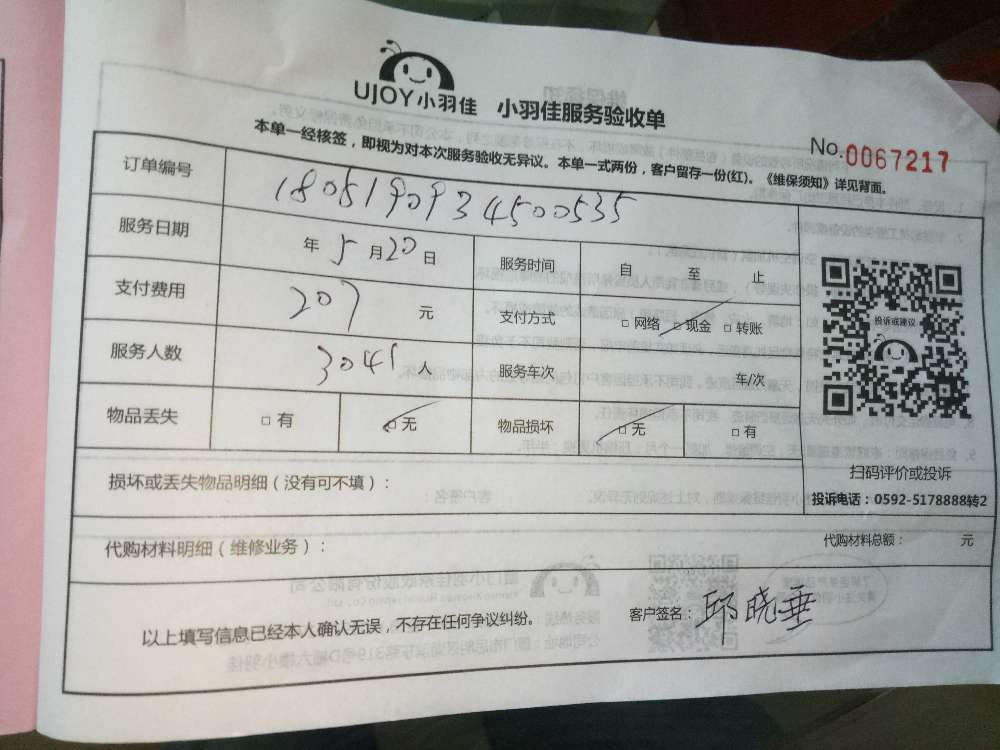 UJOY小羽佳 小羽佳服务验收单
本单一经核签，即视为对本次服务验收无异议。本单一式两份，客户留存一份(红)。《维保须知》详见背面。
No.0067217
订单编号 1805190934500535
服务日期 年 5月20日 服务时间 自 至 止
支付费用 207 元 支付方式 □网络 □现金 □转账
投诉或建议
服务人数 人 服务车次 车/次
物品丢失 □有 □无 物品损坏 □无 □有
扫码评价或投诉
损坏或丢失物品明细（没有可不填）：
投诉电话：0592-5178888转2
代购材料明细（维修业务）： 代购材料总额： 元
以上填写信息已经本人确认无误，不存在任何争议纠纷。 客户签名：邱晓垂